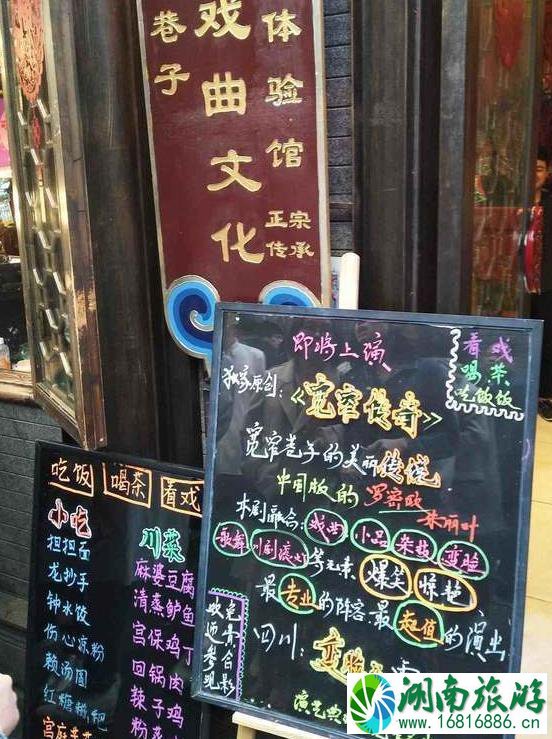 巷子
戏曲文化
体验馆
正宗
传承
即将上演
看戏
喝茶
吃饭饭
独家原创:
《宽窄传奇》
宽窄巷子的美丽传说
中国版的罗密欧
朱丽叶
本剧融合: 戏曲 小品 杂技 变脸
歌舞 川剧滚灯 等元素 爆笑 惊艳
最专业的阵容最超值的演出
四川: 变脸
演艺典
欢迎参观
免费合影
吃饭 喝茶 看戏
小吃
担担面
龙抄手
钟水饺
伤心凉粉
赖汤圆
红糖糍粑
川菜
麻婆豆腐
清蒸鲈鱼
宫保鸡丁
回锅肉
辣子鸡
湖南旅游
www.16816886.cn